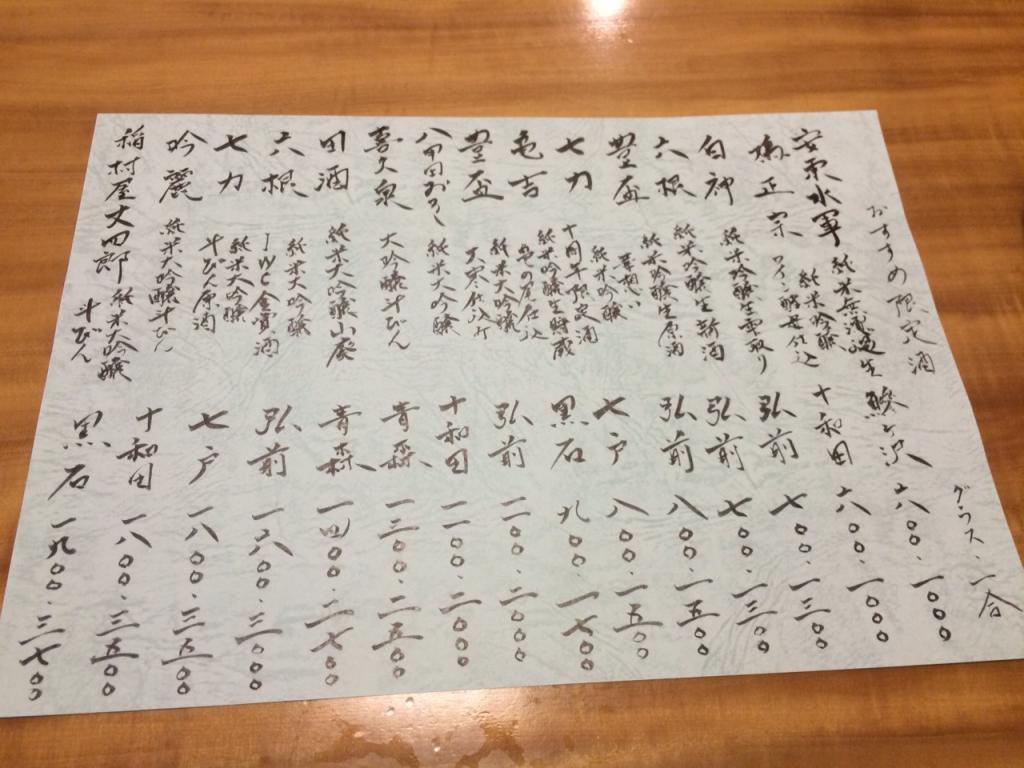 おすすめ限定酒 グラス・一合
安東水軍 純米無濾過生 鰺ヶ沢 六〇〇・一〇〇〇
鳩正宗 純米吟醸 ワイン酵母仕込 十和田 六〇〇・一〇〇〇
白神 純米吟醸生雫取り 弘前 七〇〇・一三〇〇
六根 純米吟醸生新酒 弘前 七〇〇・一三〇〇
豊盃 純米吟醸生原酒 弘前 八〇〇・一五〇〇
七力 純米吟醸 華想い 限定酒 七戸 八〇〇・一五〇〇
亀吉 純米吟醸生貯蔵 亀の尾仕込 黒石 九〇〇・一七〇〇
豊盃 純米大吟醸 大寒仕込 弘前 一一〇〇・二〇〇〇
八甲田おろし 純米大吟醸 十和田 一一〇〇・二〇〇〇
喜久泉 大吟醸斗びん 青森 一三〇〇・二五〇〇
田酒 純米大吟醸山廃 青森 一四〇〇・二七〇〇
六根 純米大吟醸 IWC金賞酒 弘前 一六〇〇・三〇〇〇
七力 純米大吟醸 斗びん原酒 七戸 一八〇〇・三五〇〇
吟麗 純米大吟醸斗びん 十和田 一八〇〇・三五〇〇
稲村屋文四郎 純米大吟醸 斗びん 黒石 一九〇〇・三七〇〇